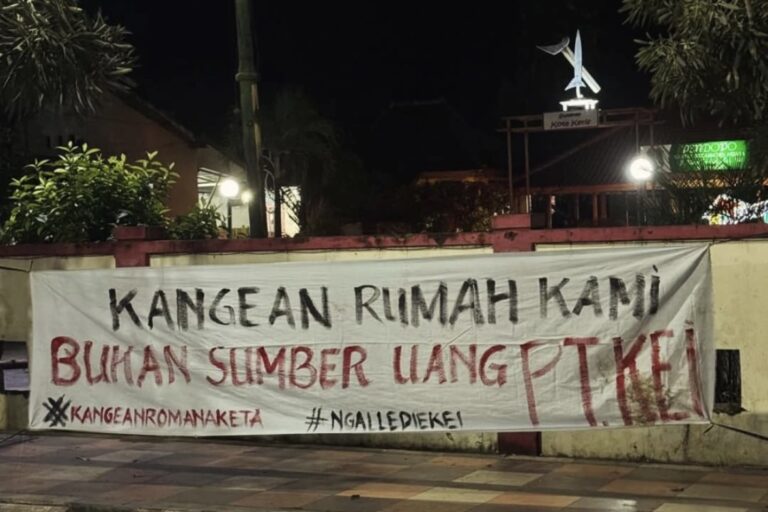 Kota Keris
PENDOPO
KANGEAN RUMAH KAMi
BUKAN SUMBER UANG PT.KEi
#KANGEANROMANAKETA #NGALLEDIEKEI